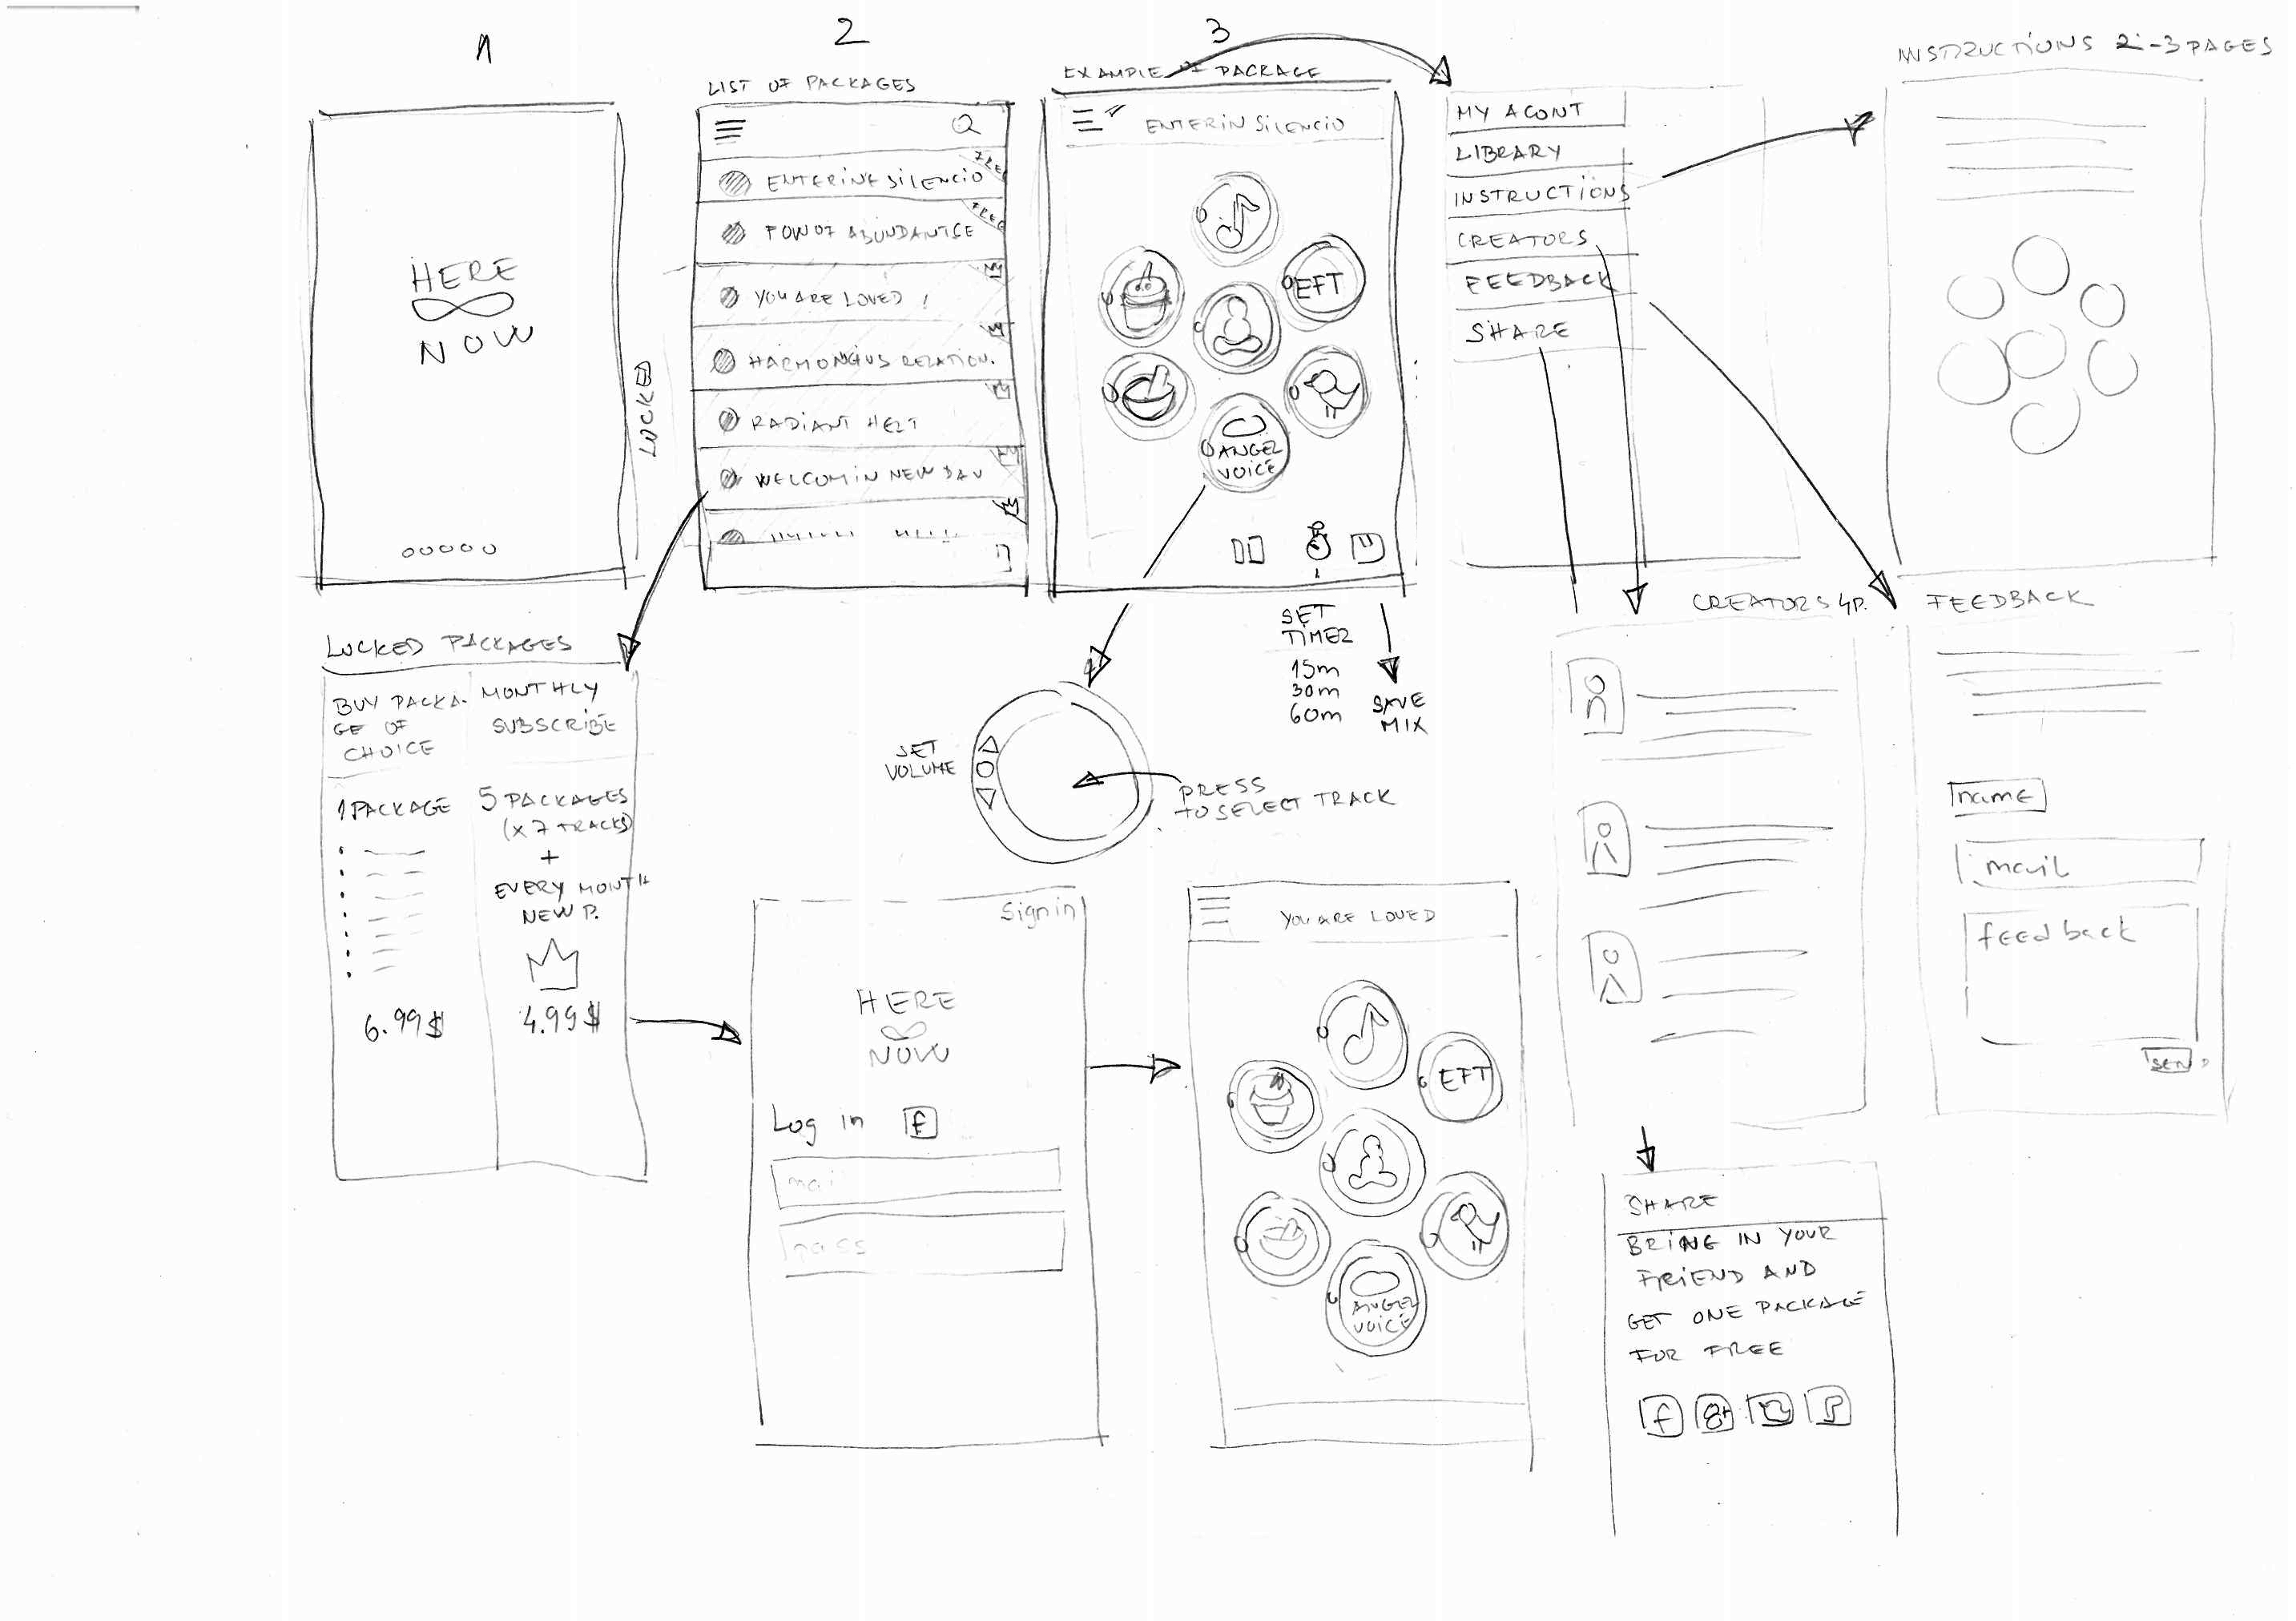 1
HERE
NOW
2
LIST OF PACKAGES
ENTERING SILENCIO
FREE
POW OF ABUNDANTCE
FREE
YOU ARE LOVED !
HARMONGIUS RELATION.
RADIANT HELT
WELCOMIN NEW DAY
LOCKED
3
EXAMPLE OF PACKAGE
ENTERIN SILENCIO
EFT
ANGEL
VOICE
SET
TIMER
15m
30m
60m
SAVE
MIX
SET
VOLUME
PRESS
TO SELECT TRACK
MY ACONT
LIBRARY
INSTRUCTIONS
CREATORS
FEEDBACK
SHARE
INSTRUCTIONS 2-3 PAGES
LOCKED PACKAGES
BUY PACKA-
GE OF
CHOICE
1 PACKAGE
6.99$
MONTHLY
SUBSCRIBE
5 PACKAGES
(x 7 TRACKS)
+
EVERY MONTH
NEW P.
4.99$
Sign in
HERE
NOW
Log in f
mail
pass
YOU ARE LOVED
EFT
ANGEL
VOICE
CREATORS 4P.
FEEDBACK
name
mail
feedback
SEN
SHARE
BRING IN YOUR
FRIEND AND
GET ONE PACKAGE
FOR FREE
f g+